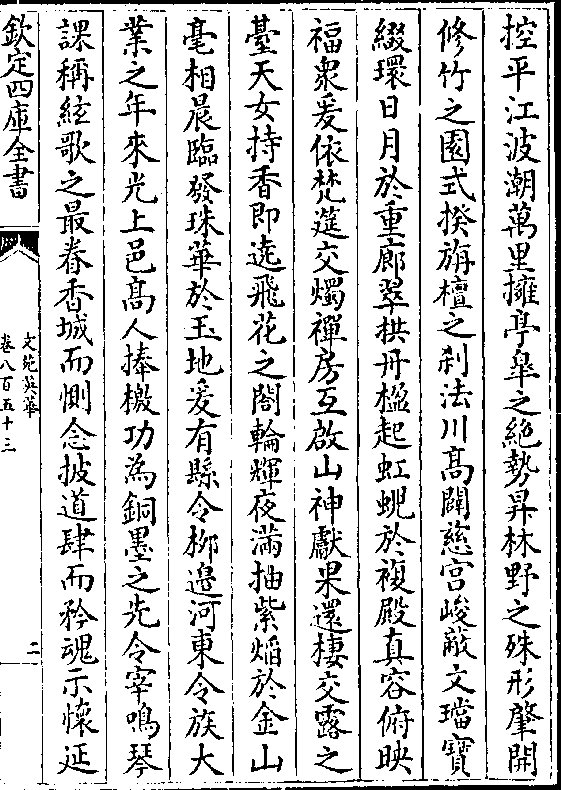 控平江波潮萬里擁亭臯之絶勢昇林野之殊形肇開
修竹之園式揆旃檀之刹法川髙闢慈宫峻敞文璫寳
綴環日月於重廊翠栱丹楹起虹蜺於複殿真容俯映
福衆爰依梵筵交燭禪房互啟山神獻果還棲交露之
臺天女持香即遶飛花之閣輪輝夜滿抽紫燄於金山
毫相晨臨發珠華於玉地爰有縣令栁邉河東令族大
業之年來光上邑髙人捧檄功為銅墨之先令宰鳴琴
課稱絃歌之最眷香城而惻念披道肆而矜魂示懐延
欽定四庫全書
文苑英華
卷八百五十三
二